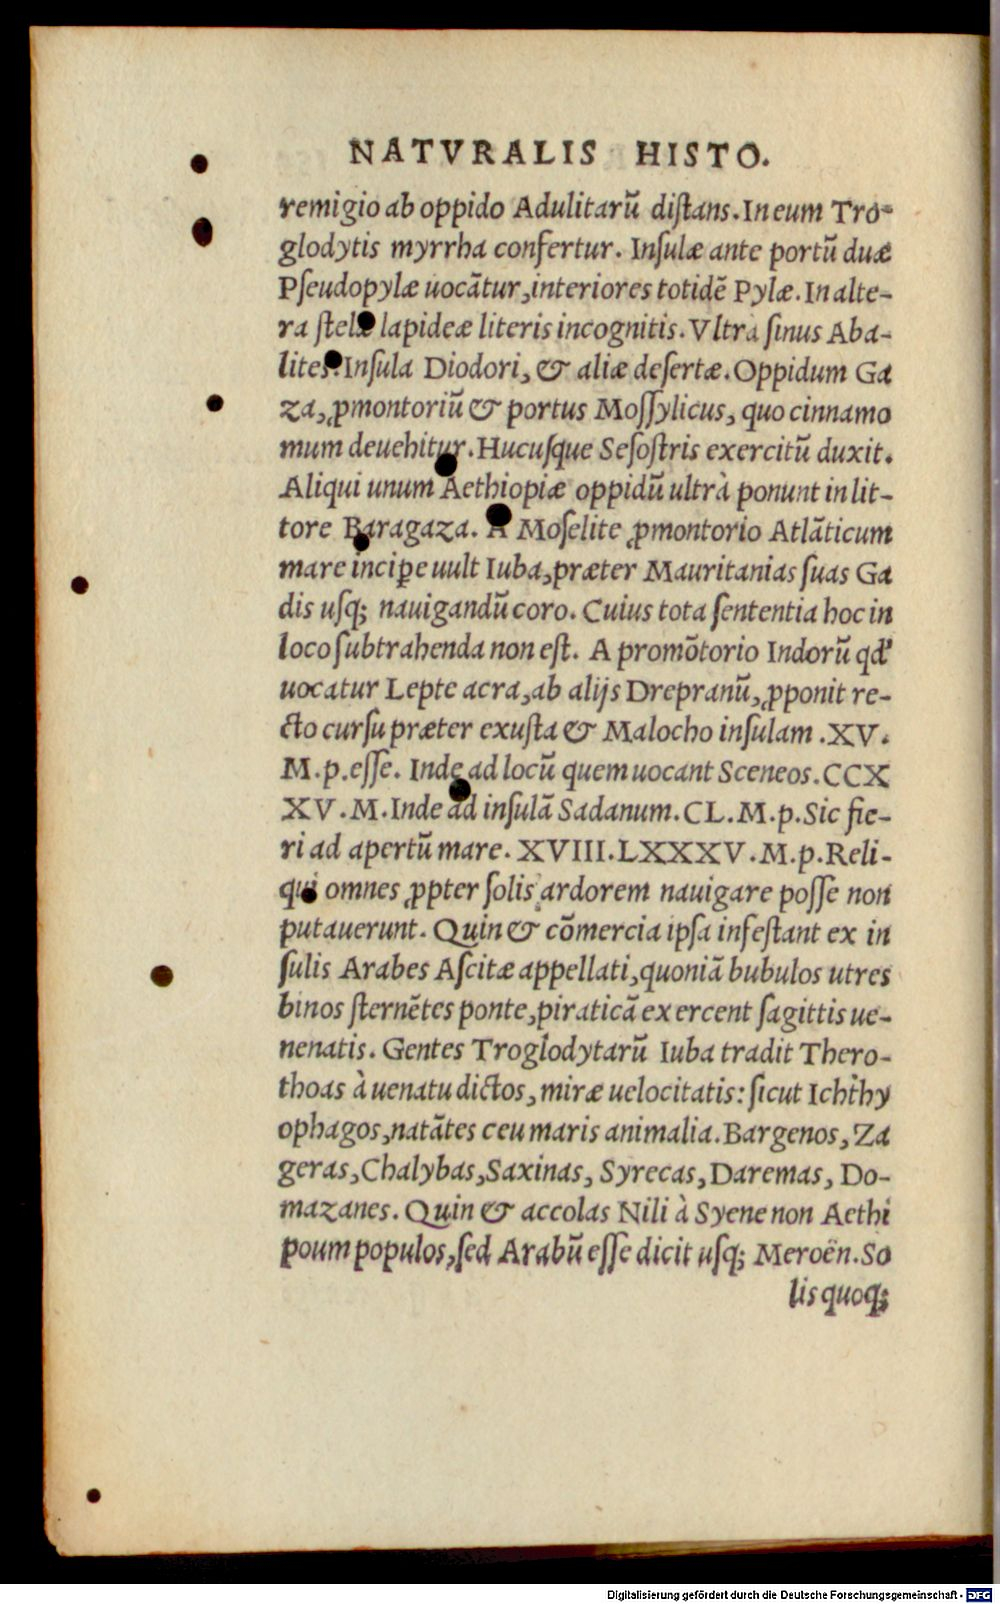 NATVRALIS HISTO.
remigio ab oppido Adulitarũ distans. In eum Tro-
glodytis myrrha confertur. Insulæ ante portũ duæ
Pseudopylæ uocãtur, interiores totidẽ Pylæ. In alte-
ra stelæ lapideæ literis incognitis. Vltra sinus Aba-
lites. Insula Diodori, & aliæ desertæ. Oppidum Ga
za, ꝓmontoriũ & portus Mossylicus, quo cinnamo
mum deuehitur. Hucusque Sesostris exercitũ duxit.
Aliqui unum Aethiopiæ oppidũ ultrà ponunt in lit-
tore Baragaza. A Moselite ꝓmontorio Atlãticum
mare inciꝑe uult Iuba, præter Mauritanias suas Ga
dis usq; nauigandũ coro. Cuius tota sententia hoc in
loco subtrahenda non est. A promõtorio Indorũ qd'
uocatur Lepte acra, ab alijs Drepranũ, ꝓponit re-
cto cursu præter exusta & Malocho insulam .XV.
M.p.esse. Inde ad locũ quem uocant Sceneos.CCX
XV.M.Inde ad insulã Sadanum.CL.M.p.Sic fie-
ri ad apertũ mare. XVIII.LXXXV.M.p.Reli-
qui omnes ꝓpter solis ardorem nauigare posse non
putauerunt. Quin & cõmercia ipsa infestant ex in
sulis Arabes Ascitæ appellati, quoniã bubulos utres
binos sternẽtes ponte, piraticã exercent sagittis ue-
nenatis. Gentes Troglodytarũ Iuba tradit Thero-
thoas à uenatu dictos, miræ uelocitatis: sicut Ichthy
ophagos, natãtes ceu maris animalia. Bargenos, Za
geras, Chalybas, Saxinas, Syrecas, Daremas, Do-
mazanes. Quin & accolas Nili à Syene non Aethi
poum populos, sed Arabũ esse dicit usq; Meroën. So
lis quoq;
Digitalisierung gefördert durch die Deutsche Forschungsgemeinschaft - DFG